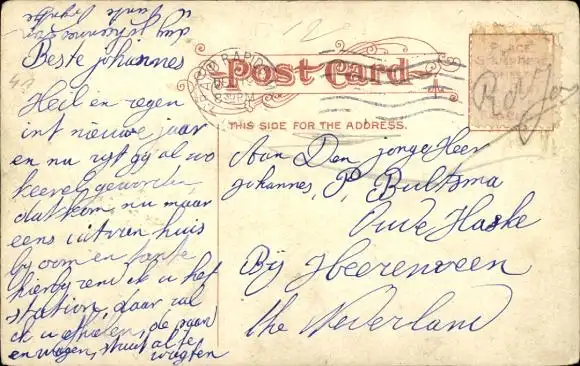 Post Card
THIS SIDE FOR THE ADDRESS.
PLACE
STAMP HERE
Beste johannes
Heil en zegen
int nieuwe jaar
en nu zyt gy al zo
geworden
dat kom nu maar
eens uit van huis
by oom en tante
hierby zend ik u het
station, daar zal
ik u afhalen, de paan
en wagen, staat al te
wagten
Aan Den jonge Heer
johannes, P, Bultsma
Oude Haske
Bij Heerenveen
the Nederland